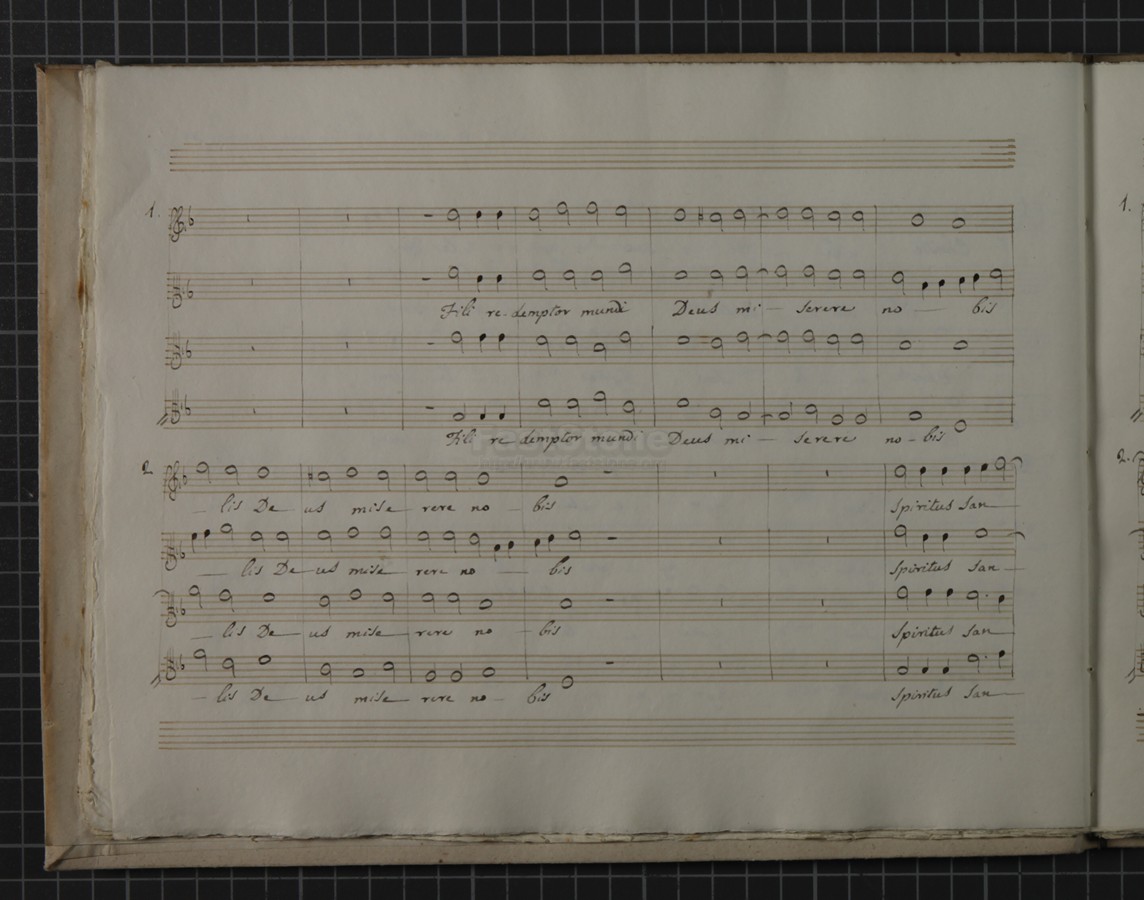 1.
1.
Fili re-demptor mundi Deus mi- serere no- bis
Fili re demptor mundi Deus mi- serere no-bis
2
2.
- lis De- us mise- rere no- bis Spiritus San-
- lis De- us mise- rere no- bis Spiritus San-
- lis De- us mise- rere no- bis Spiritus San-
- lis De- us mise- rere no- bis Spiritus San-
FastStone